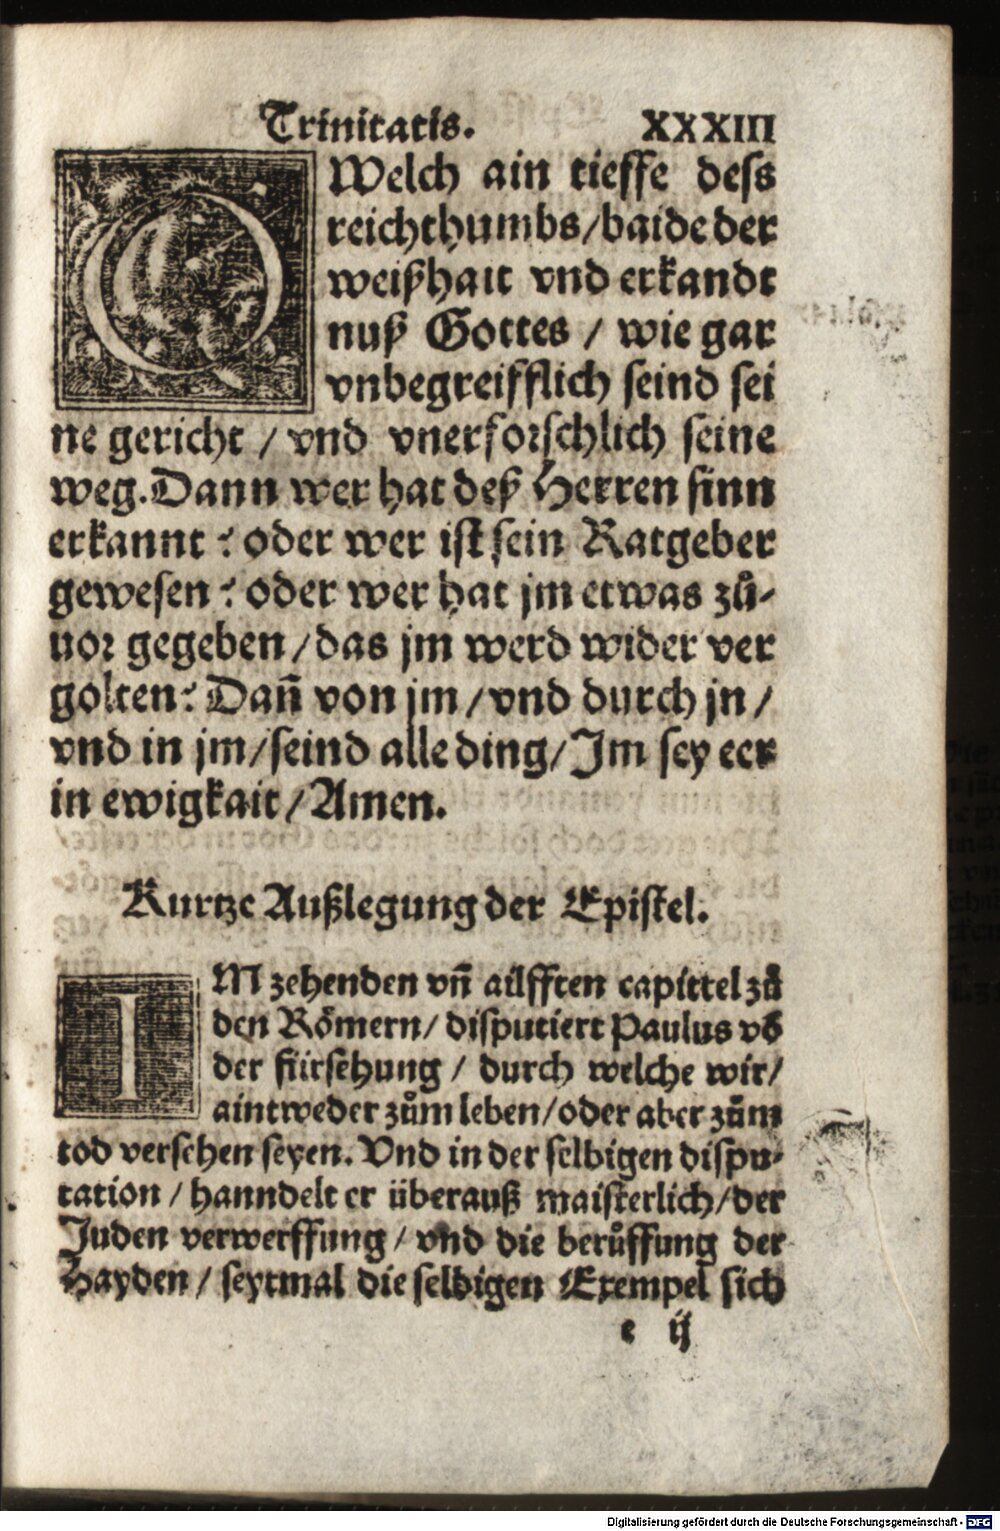 Trinitatis. XXXIII
O Welch ain tieffe dess
reichthumbs/baide der
weißhait vnd erkandt
nuß Gottes / wie gar
vnbegreifflich seind sei
ne gericht / vnd vnerforschlich seine
weg. Dann wer hat deß Herren sinn
erkannt? oder wer ist sein Ratgeber
gewesen? oder wer hat jm etwas zů-
uor gegeben/das jm werd wider ver
golten? Dañ von jm/vnd durch jn/
vnd in jm/seind alle ding/Im sey eer
in ewigkait/Amen.
Kurtze Außlegung der Epistel.
IM zehenden vñ aülfften capittel zů
den Rőmern/ disputiert Paulus vō
der fürsehung / durch welche wir/
aintweder zům leben/oder aber zům
tod versehen seyen. Vnd in der selbigen dispu-
tation / hanndelt er überauß maisterlich/der
Juden verwerffung / vnd die berůffung der
Hayden / seytmal die selbigen Exempel sich
e ij
Digitalisierung gefördert durch die Deutsche Forschungsgemeinschaft - DFG